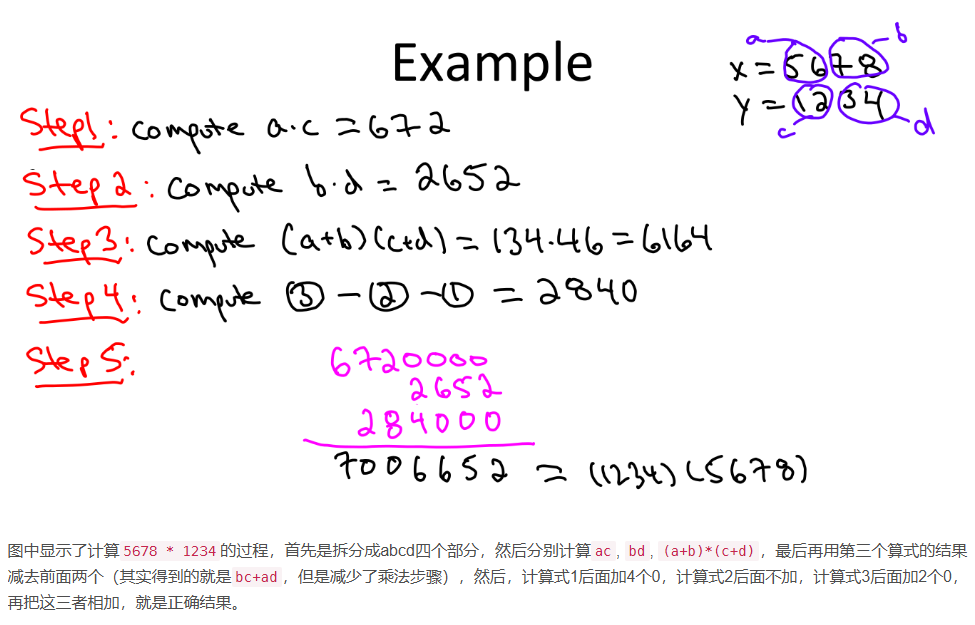 Example
a
b
x = 5678
y = 1234
c
d
Step1: compute a·c = 672
Step 2: compute b·d = 2652
Step3: compute (a+b)(c+d) = 134·46 = 6164
Step 4: compute ③ - ② - ① = 2840
Step 5:
6720000
2652
284000
7006652 = (1234)(5678)
图中显示了计算 5678 * 1234 的过程，首先是拆分成abcd四个部分，然后分别计算 ac , bd , (a+b)*(c+d) ，最后再用第三个算式的结果
减去前面两个（其实得到的就是 bc+ad ，但是减少了乘法步骤），然后，计算式1后面加4个0，计算式2后面不加，计算式3后面加2个0，
再把这三者相加，就是正确结果。